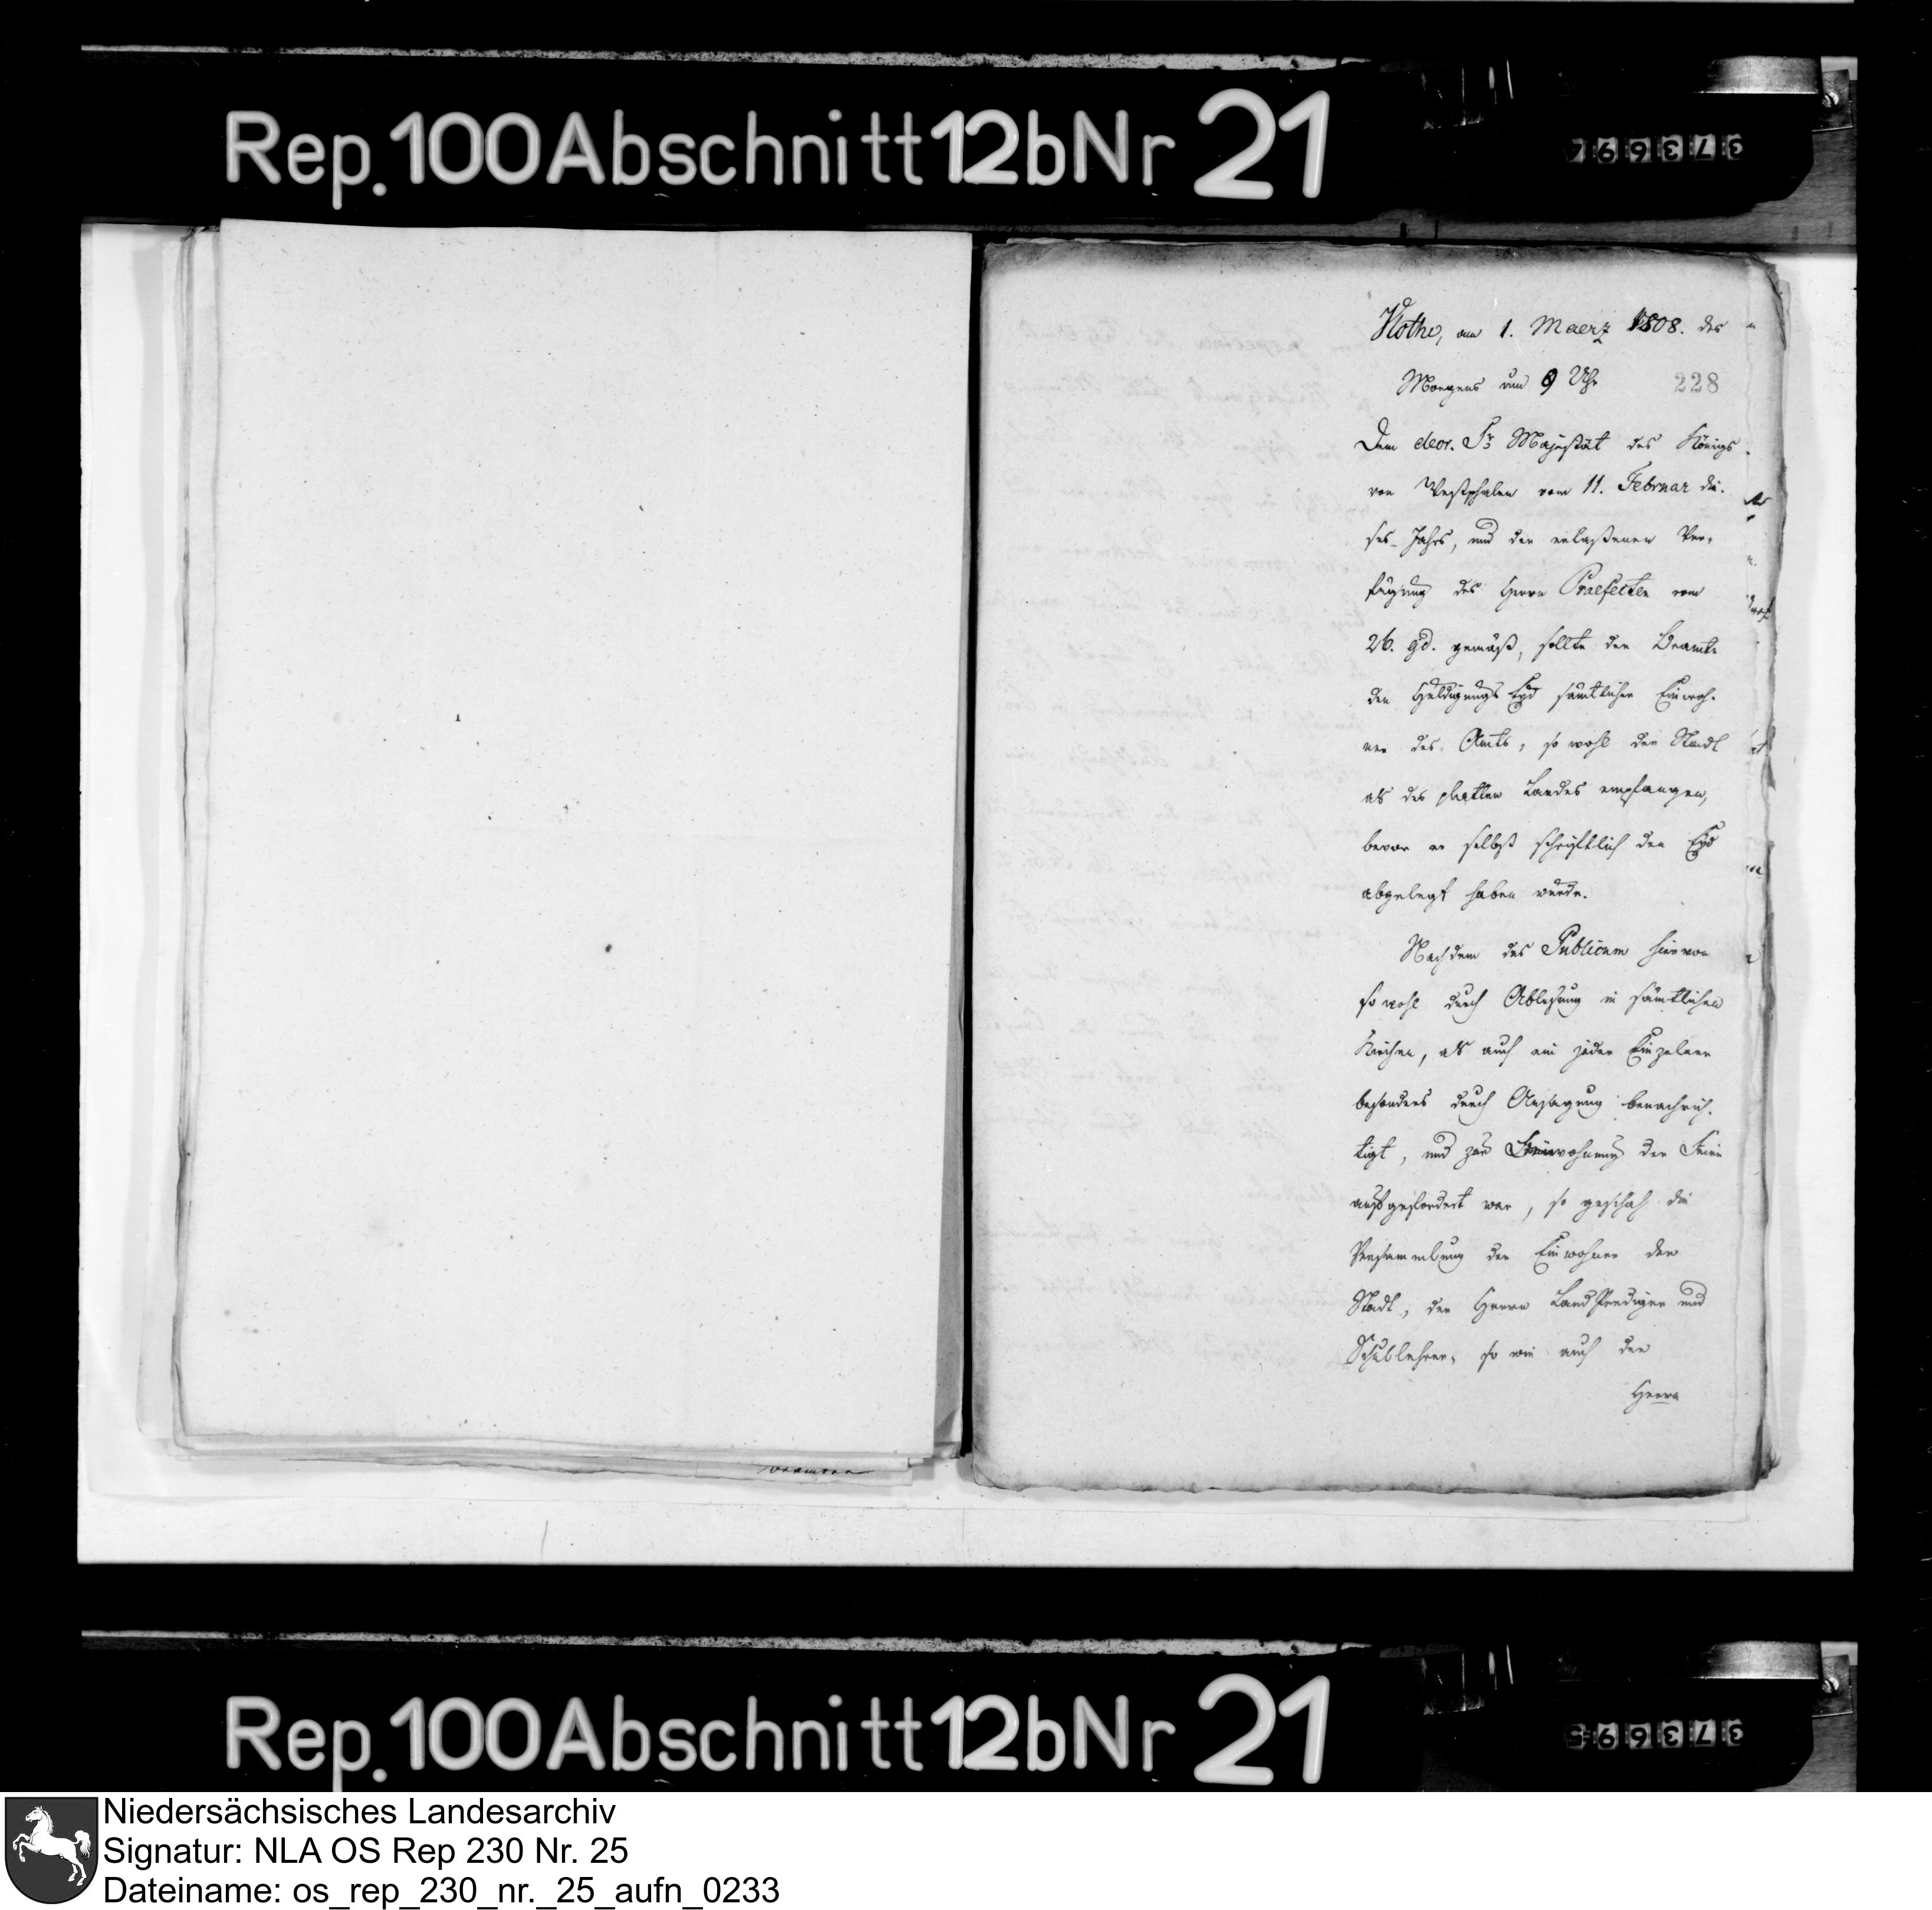 Rep. 100 Abschnitt 12b Nr 21
Vlotho, am 1. Maerz 1808. des
Morgens um 9 Uhr
228
Dem decr. Sr Majestät des Königs
von Westphalen vom 11. Februar die-
ses Jahrs, und der erlaßenen Ver-
fügung des Herrn Praefecten vom
26. ej. gemäß, sollte der Beamte
den Huldigungs Eyd sämtlicher Einwoh-
ner des Amts, so wohl der Stadt
als des platten Landes empfangen,
bevor er selbst schriftlich den Eyd
abgelegt haben würde.
Nachdem das Publicum hievon
so wohl durch Ablesung in sämtlichen
Kirchen, als auch ein jeder Einzelner
besonders durch Ansagung benachrich-
tigt, und zur Beiwohnung der Feier
aufgefordert war, so geschah die
Versammlung der Einwohner der
Stadt, der Herrn Land Prediger und
Schullehrer, so wie auch der
Herrn
Rep. 100 Abschnitt 12b Nr 21
373695
Niedersächsisches Landesarchiv
Signatur: NLA OS Rep 230 Nr. 25
Dateiname: os_rep_230_nr._25_aufn_0233